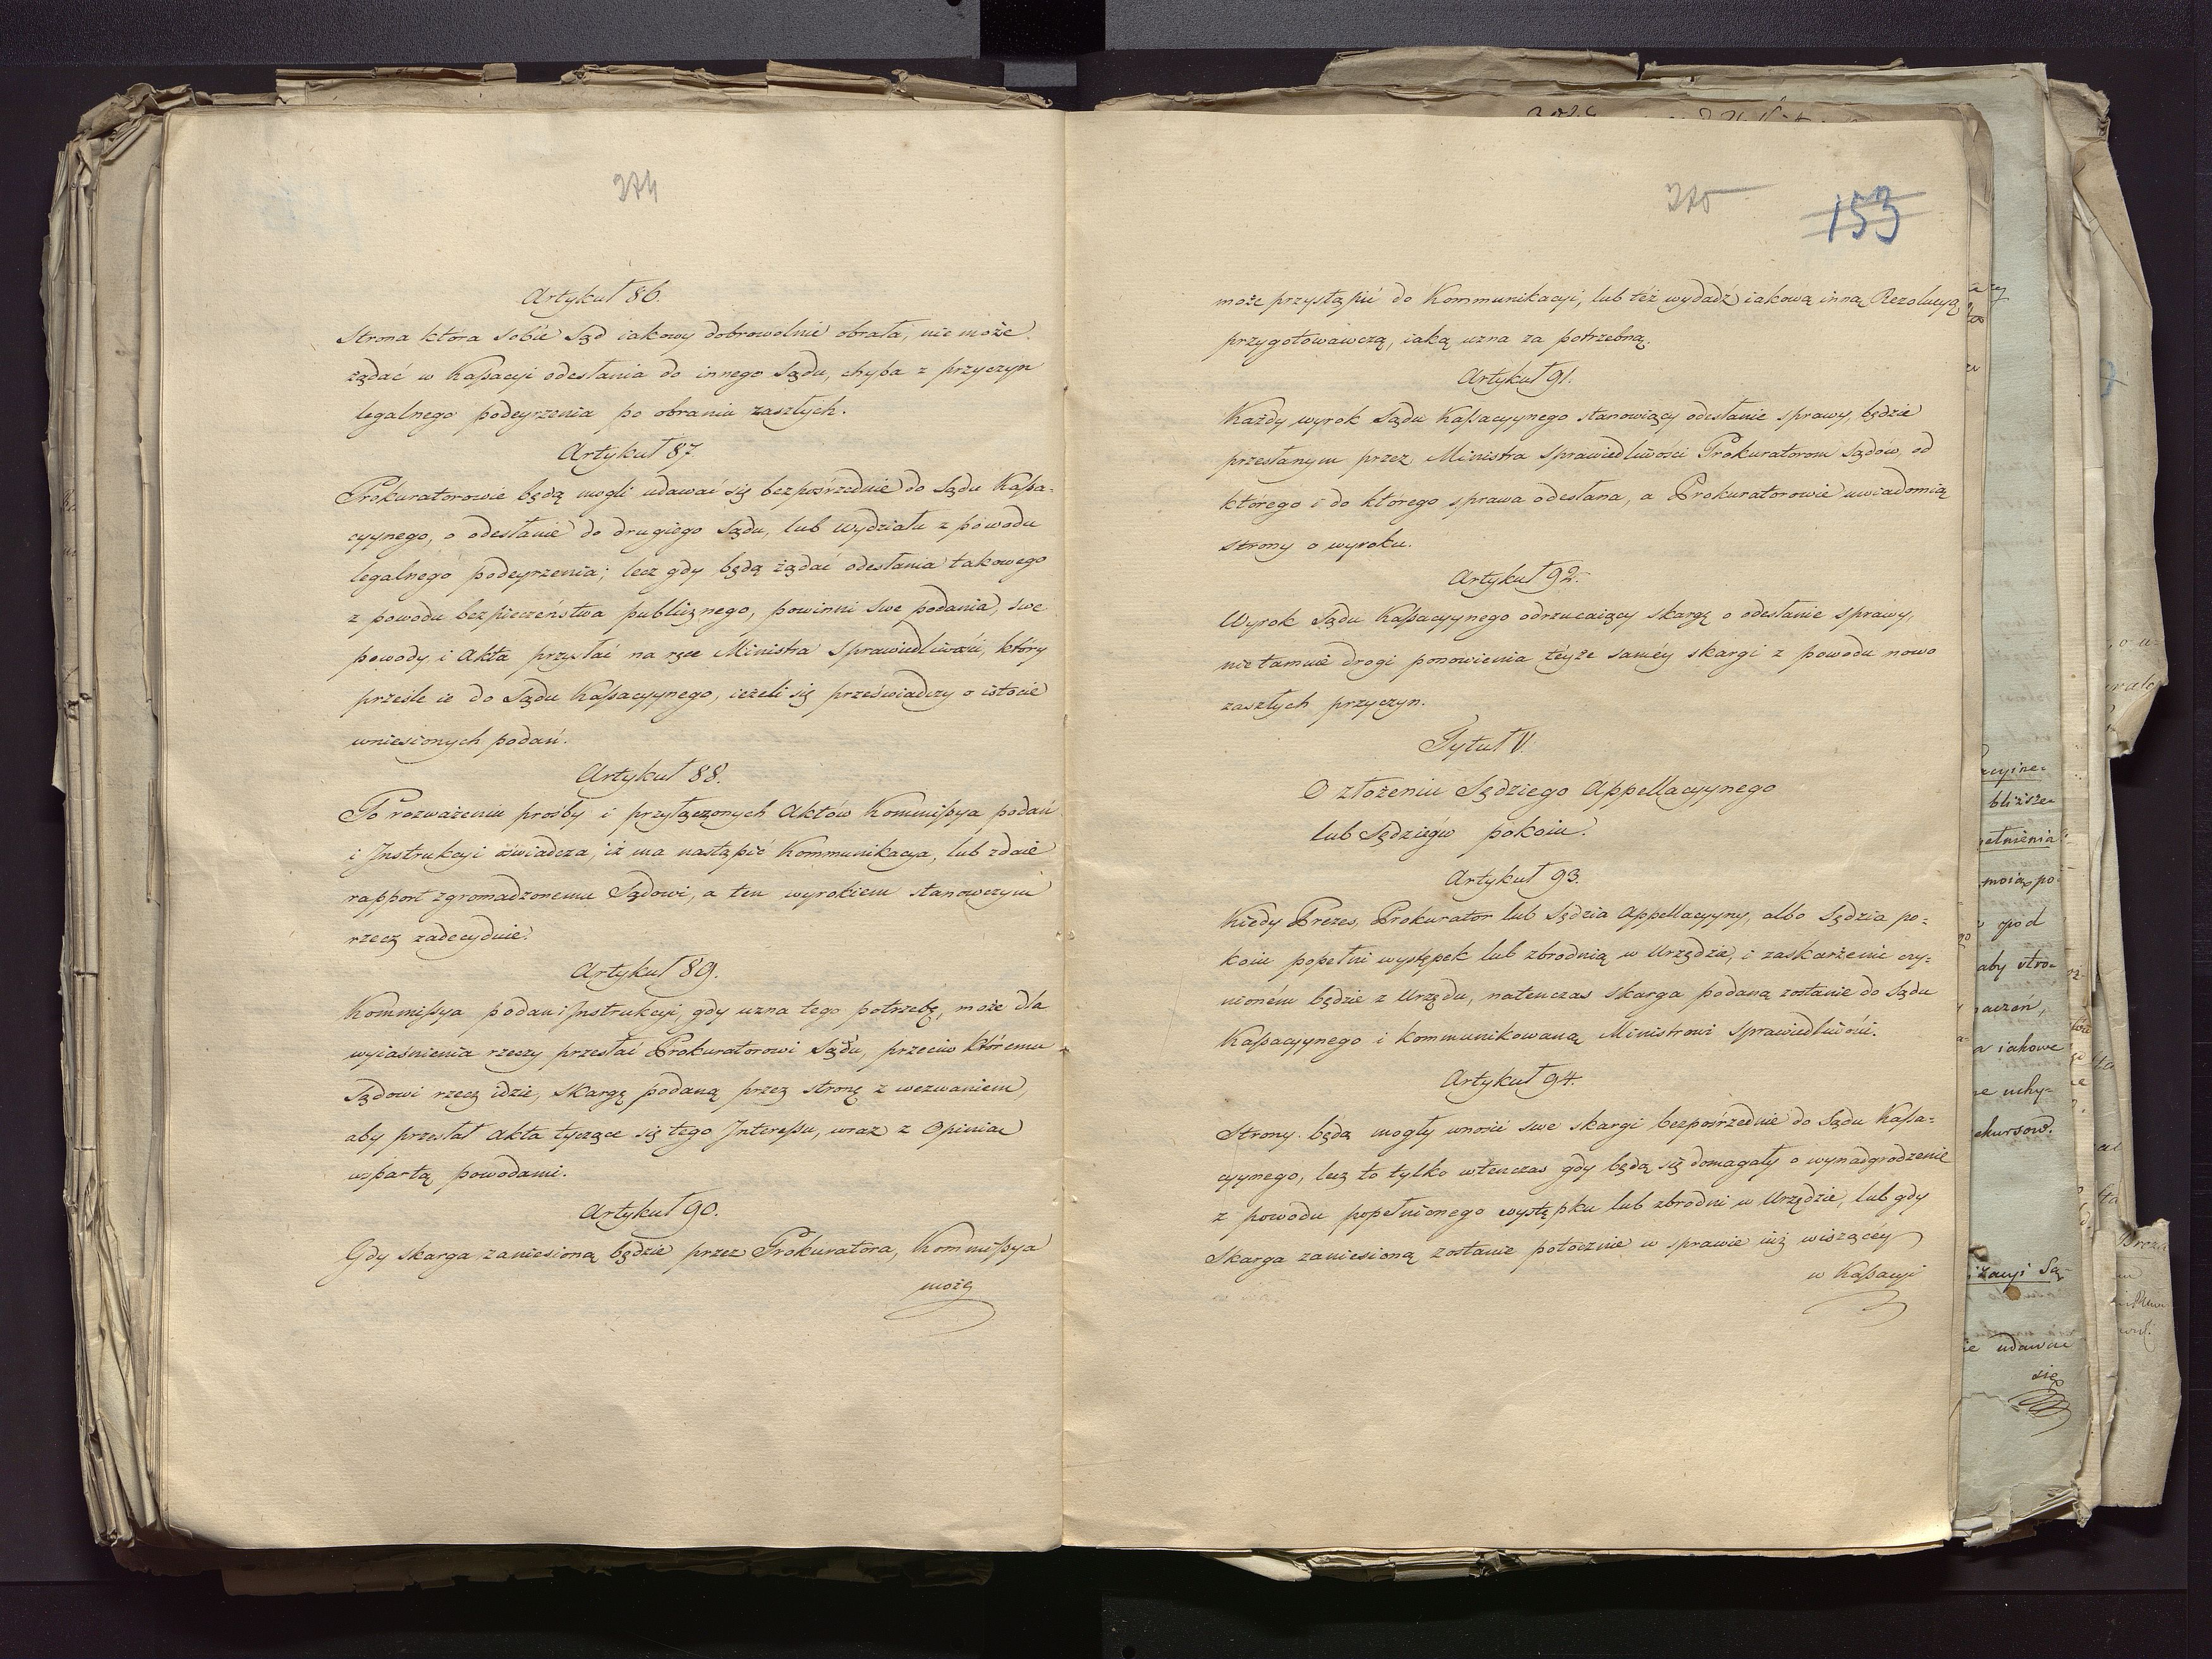 274
Artykuł 86.
Strona która sobie Sąd iakowy dobrowolnie obrała, nie może
żądać w Kaſsacyi odesłania do innego Sądu, chyba z przyczyn
legalnego podeyrzenia po obraniu zaszłych.
Artykuł 87
Prokuratorowie będą mogli udawać się bezpośrzednie do Sądu Kaſsa-
cyynego, o odesłanie do drugiego Sądu, lub Wydziału z powodu
legalnego podeyrzenia; lecz gdy będą żądać odesłania takowego
z powodu bezpieczeństwa publicznego, powinni swe podania, swe
powody i Akta przysłać na ręce Ministra Sprawiedliwości, który
prześle ie do Sądu Kaſsacyynego, ieżeli się przeświadczy o istocie
wniesionych podań.
Artykuł 88.
Po rozważeniu prośby i przyłączonych Aktów Kommiſsya podań
i Instrukcyi oświadcza, iż ma nastąpić Kommunikacya, lub zdaie
rapport zgromadzonemu Sądowi, a ten wyrokiem stanowczym
rzecz zadecyduie.
Artykuł 89.
Kommiſsya podań i Instrukcyi, gdy uzna tego potrzebę, może dla
wyiaśnienia rzeczy przesłać Prokuratorowi Sądu, przeciw któremu
Sądowi rzecz idzie, skargę podaną przez stronę z wezwaniem,
aby przesłał Akta tyczące się tego Intereſsu, wraz z Opinią
wspartą powodami.
Artykuł 90.
Gdy skarga zaniesioną będzie przez Prokuratora, Kommiſsya
może
275
153
może przystąpić do Kommunikacyi, lub też wydadź iakową inną Rezolucyą
przygotowawczą, iaką uzna za potrzebną.
Artykuł 91.
Każdy wyrok Sądu Kaſsacyynego stanowiący odesłanie sprawy, będzie
przesłanym przez Ministra Sprawiedliwości Prokuratorom Sądów, od
którego i do którego sprawa odesłana, a Prokuratorowie uwiadomią
strony o wyroku.
Artykuł 92.
Wyrok Sądu Kaſsacyynego odrzucaiący skargę o odesłanie sprawy,
nie tamuie drogi ponowienia téyże saméy skargi z powodu nowo
zaszłych przyczyn.
Tytuł V.
O złożeniu Sędziego Appellacyynego
lub Sędziego pokoiu.
Artykuł 93.
Kiedy Prezes, Prokurator lub Sędzia Appellacyyny, albo Sędzia po-
koiu popełni występek lub zbrodnią w Urzędzie, i zaskarżenie czy-
nioném będzie z Urzędu, natenczas skarga podaną zostanie do Sądu
Kaſsacyynego i kommunikowaną Ministrowi Sprawiedliwości.
Artykuł 94.
Strony będą mogły wnosić swe skargi bezpośrzednie do Sądu Kaſsa-
cyynego, lecz to tylko wtenczas gdy będą się domagały o wynadgrodzenie
z powodu popełnionego występku lub zbrodni w Urzędzie, lub gdy
Skarga zaniesioną zostanie potocznie w sprawie iuż wiszącéy
w Kaſsacyi